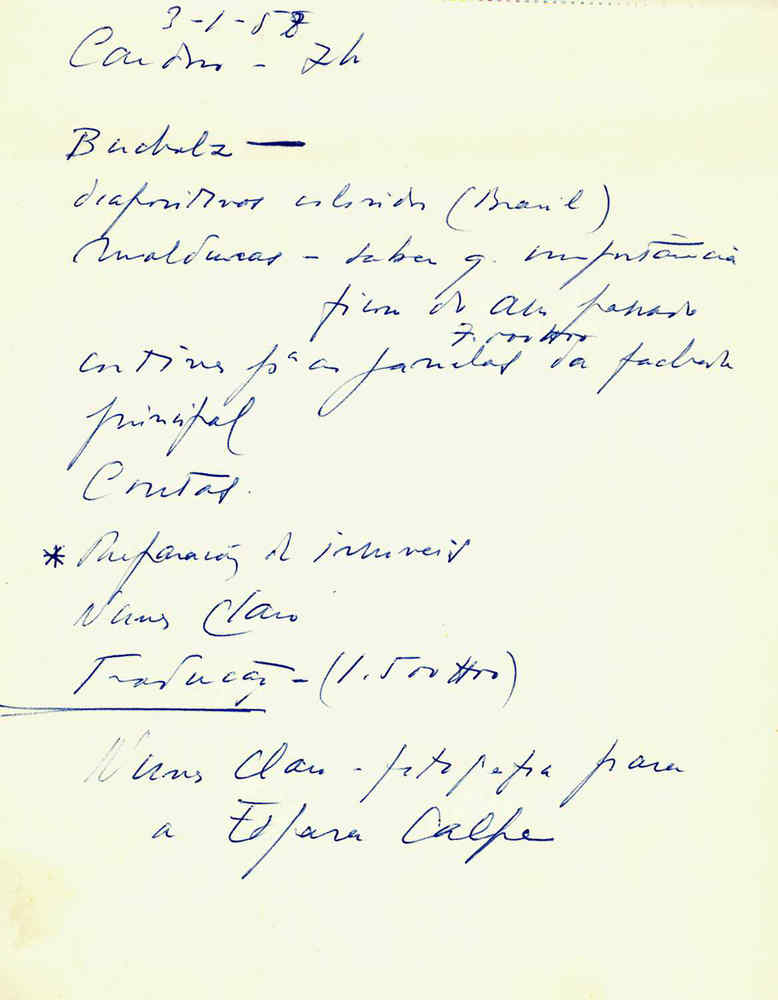 3-1-58
Cardoso - 7h
Bucholz —
diapositivos coloridos (Brasil)
Molduras - saber q. importância
ficou do ano passado
7.000$00
cortinas pª as janelas da fachada
principal
Contas.
* Reparação de imóveis
Nunes Claro
Traducção - (1.500$00)
Nunes Claro - fotografia para
a Espasa Calpe